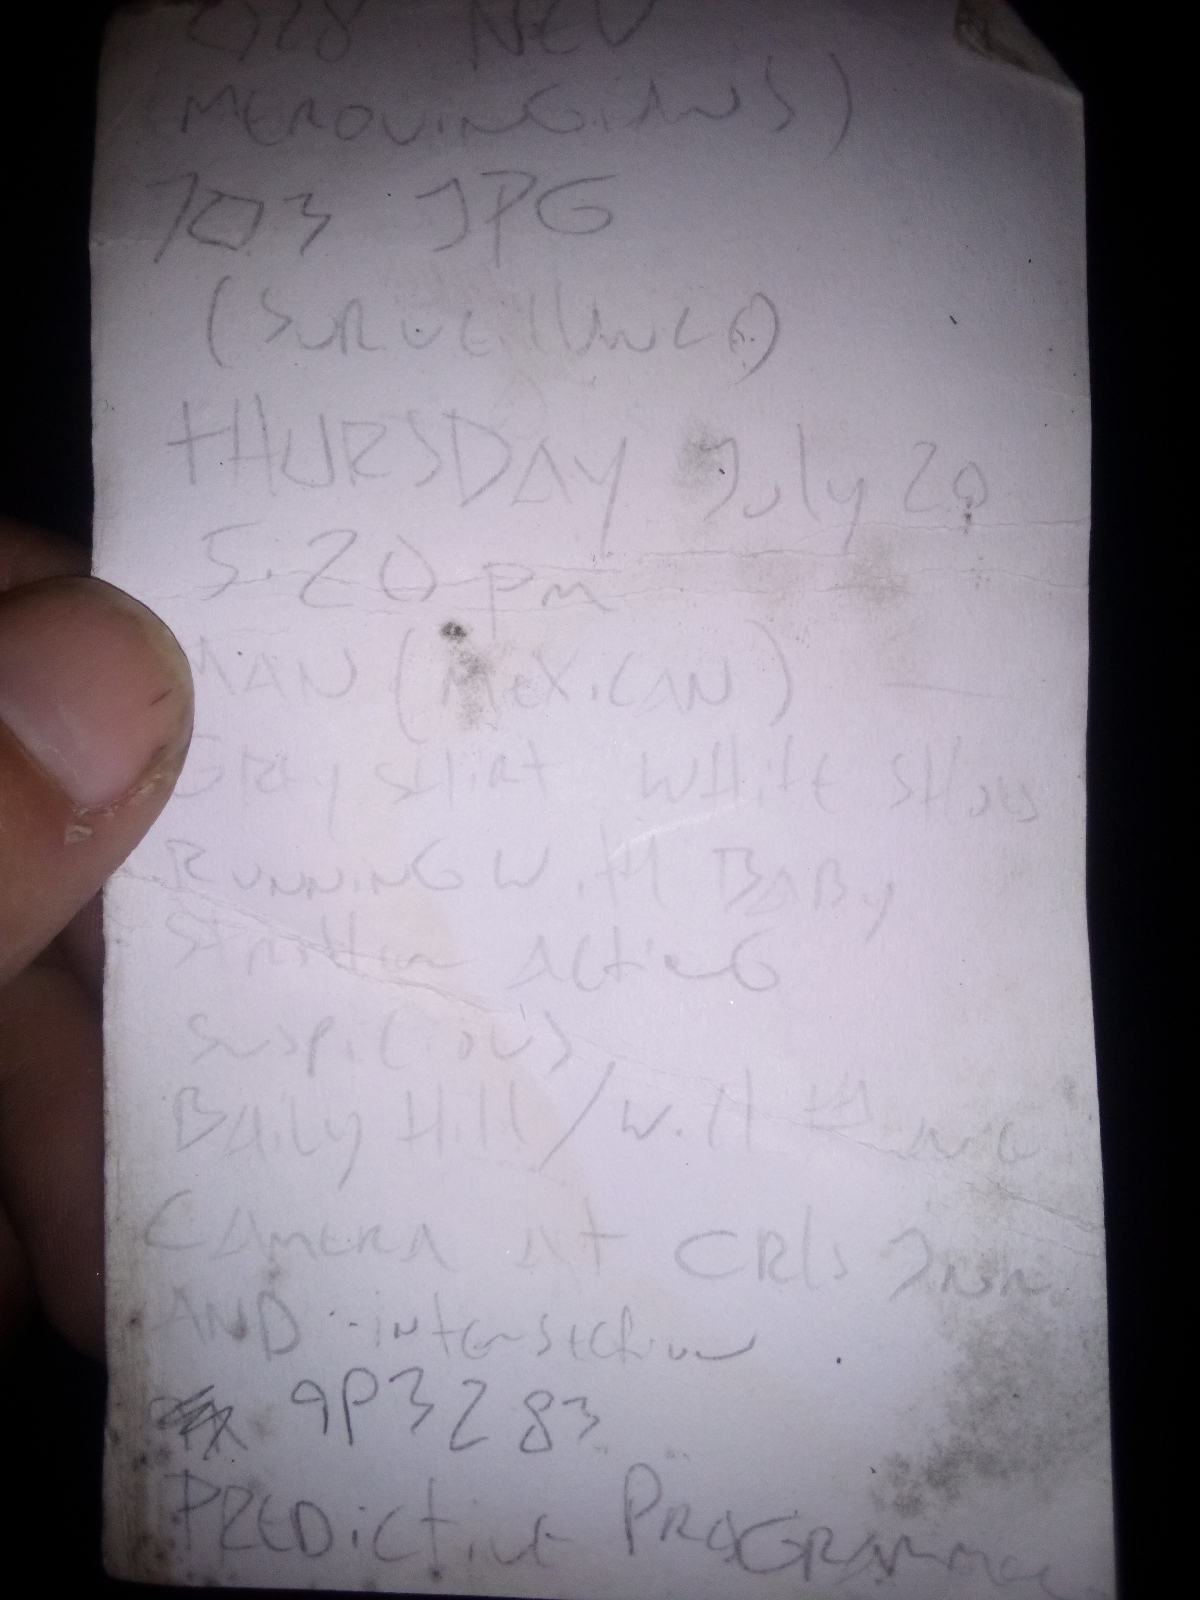 NEW
MEROVINGIANS)
703 JPG
(SURVEILLANCE)
THURSDAY July 20
5:20 pm
MAN (MEXICAN)
GREY SHIRT WHITE SHOES
RUNNING WITH BABY
ACTING
SUSPICIOUS
BAILY Hill /
CAMERA AT CRIS INN
AND intersection
9P3283
PREDICTIVE PROGRAMMING